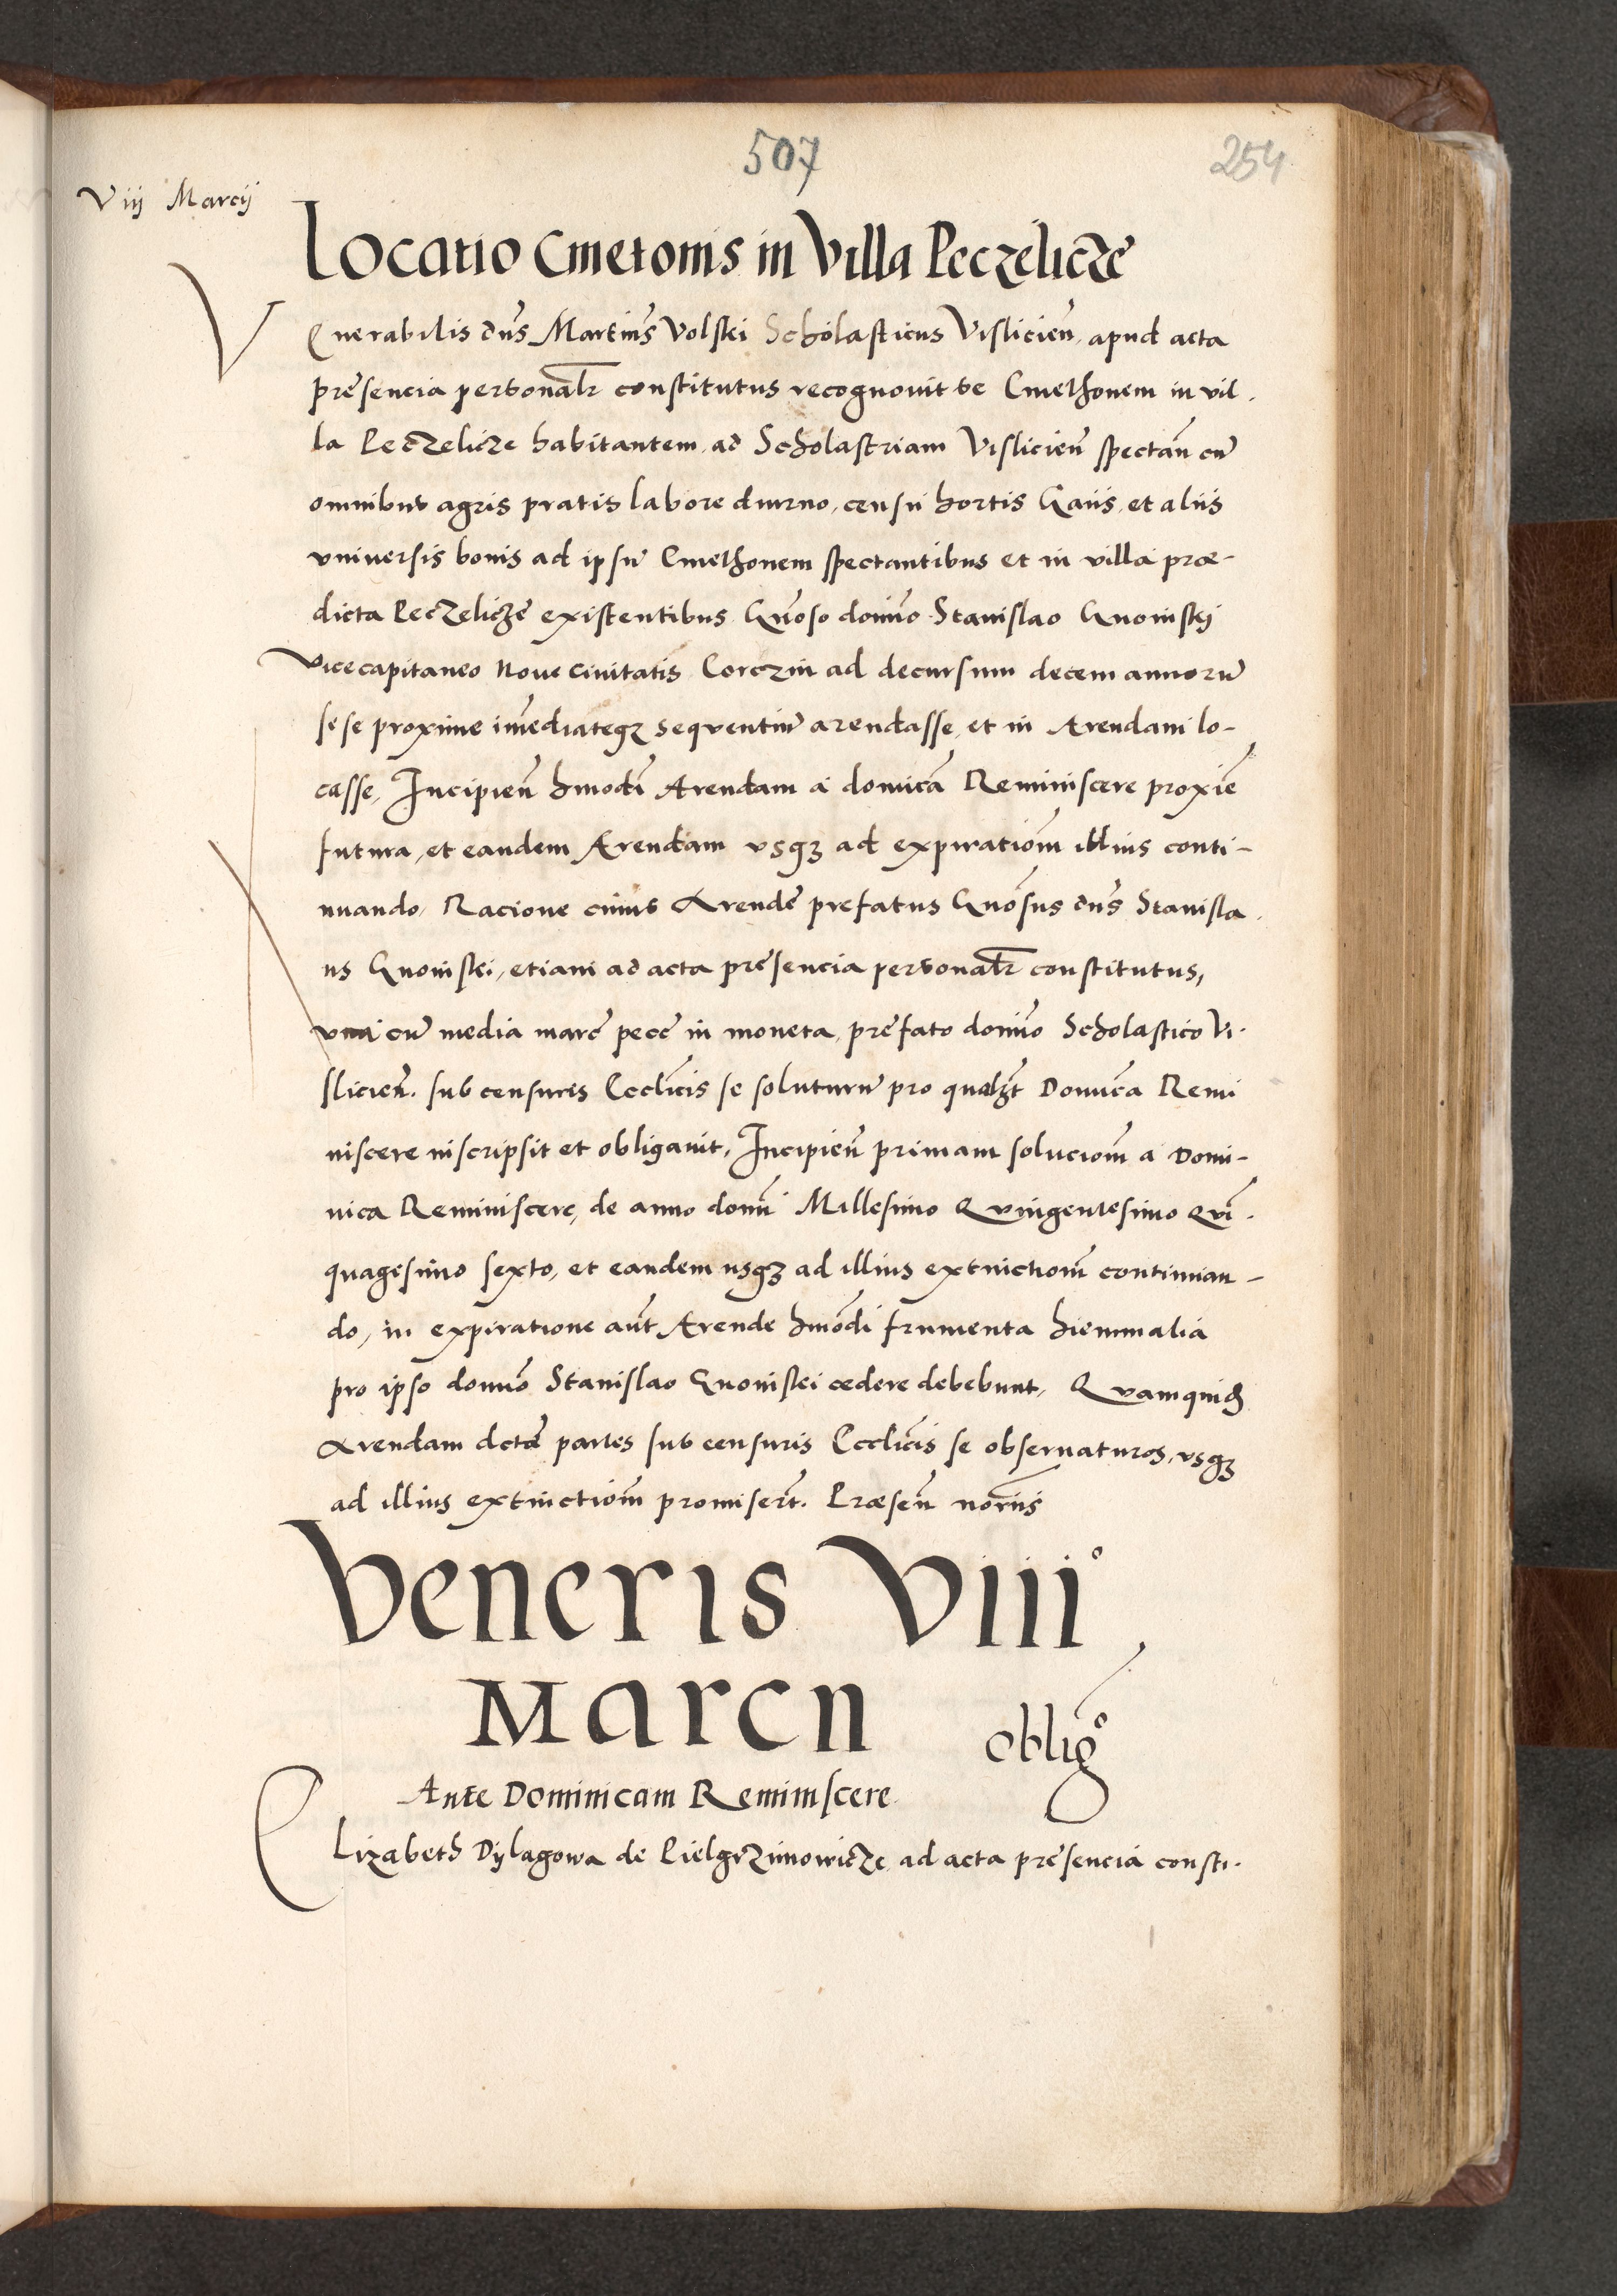 507
254
Viij Marcij
Locatio Cmetonis in Villa Peczelicze
Venerabilis dns Martins Volski Scholasticus Visliciens apud acta
presencia personalr constitutus recognovit se Cmethonem in vil-
la Peczelicze habitantem ad Scholastriam Vislicien spectan cu
omnibus agris pratis labore diurno, censu hortis Gaiis et aliis
vniversis bonis ad ipsu Cmethonem spectantibus et in villa præ-
dicta Peczelicze existentibus Gnoso domino Stanislao Gnoinskj
Vicecapitaneo Noue Civitatis Corczin ad decursum decem annoru
sese proxime imediateqz sequentiu arendasse, et in Arendam lo-
casse, Incipien hmodi Arendam a domica Reminiscere proxie
futura, et eandem Arendam vsqz ad expirationm illius conti-
nuando, Racione cuius Arende prefatus Gnosus dns Stanisla-
us Gnoinski, etiam ad acta presencia personalr constitutus,
vna cu media marc pecc in moneta, prefato domino Scholastico Vi-
slicien. sub censuris Ecclicis se soluturu pro qualzt Domica Remi
niscere inscripsit et obligavit, Incipien primam solucionm a Domi-
nica Reminiscere, de anno domi Millesimo Quingentesimo Qvi-
quagesimo sexto, et eandem usqz ad illius extinctionm continuan-
do, in expiratione aut Arende hmodi frumenta hiemmalia
pro ipso domino Stanislao Gnoinski cedere debebunt, Quamquid
Arendam dcte partes sub censuris Ecclicis se observaturos, vsqz
ad illius extinctionm promisert. Præsen noriis
Veneris Viii°
Marcii
oblig°
Ante Dominicam Reminiscere
Elizabeth Dylagowa de Pielgrzimowicze ad acta presencia consti-